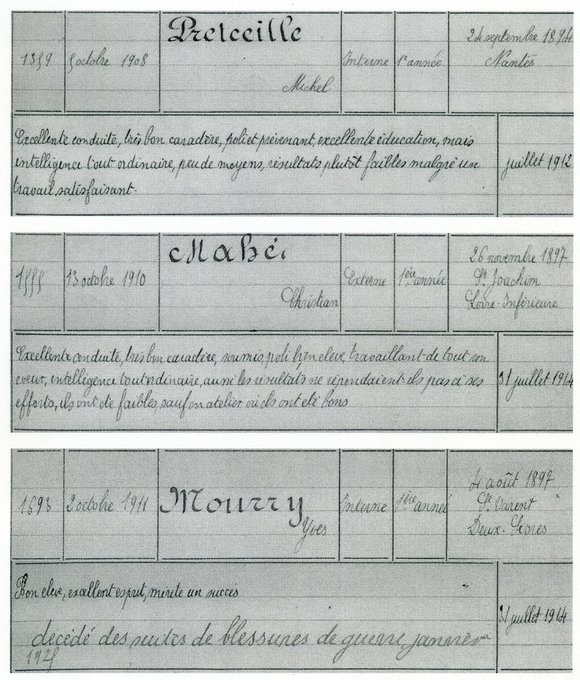 Preteeille
24 septembre 1894
1359 5 octobre 1908 Interne 1e année Nantes
Michel
Excellente conduite, très bon caractère, poli et prévenant, excellente éducation, mais
intelligence tout ordinaire, peu de moyens, résultats plutôt faibles malgré un
travail satisfaisant.
juillet 1912
Mahé
26 novembre 1897
1555 13 octobre 1910 Externe 1ère année St Joachim
Christian Loire-Inférieure
Excellente conduite, très bon caractère, soumis, poli, bon élève, travaillant de tout son
coeur, intelligence tout ordinaire, aussi les résultats ne répondaient ils pas à ses
efforts, ils ont été faibles sauf en atelier où ils ont été bons
31 juillet 1914
4 août 1897
1693 2 octobre 1911 Mourry Interne 1ère année St Varent
Yves Deux-Sèvres
Bon élève, excellent esprit, mérite un succès
31 juillet 1914
décédé des suites de blessures de guerre, janvier